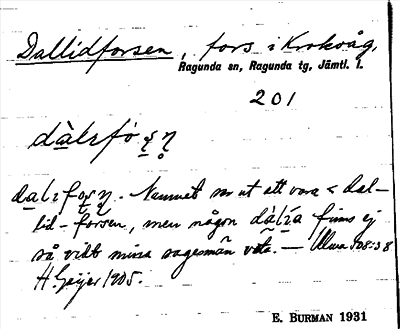 Dallidforsen, fors i Krokvåg,
Ragunda sn, Ragunda tg, Jämtl. l.
201
dalifo
Namnet ser ut att vara < Dal-
lid-forsen, men någon dàlía finns ej
så vidt mina sagesmän veta. — Ulma 508:38
H. Geijer 1905.
E. BURMAN 1931